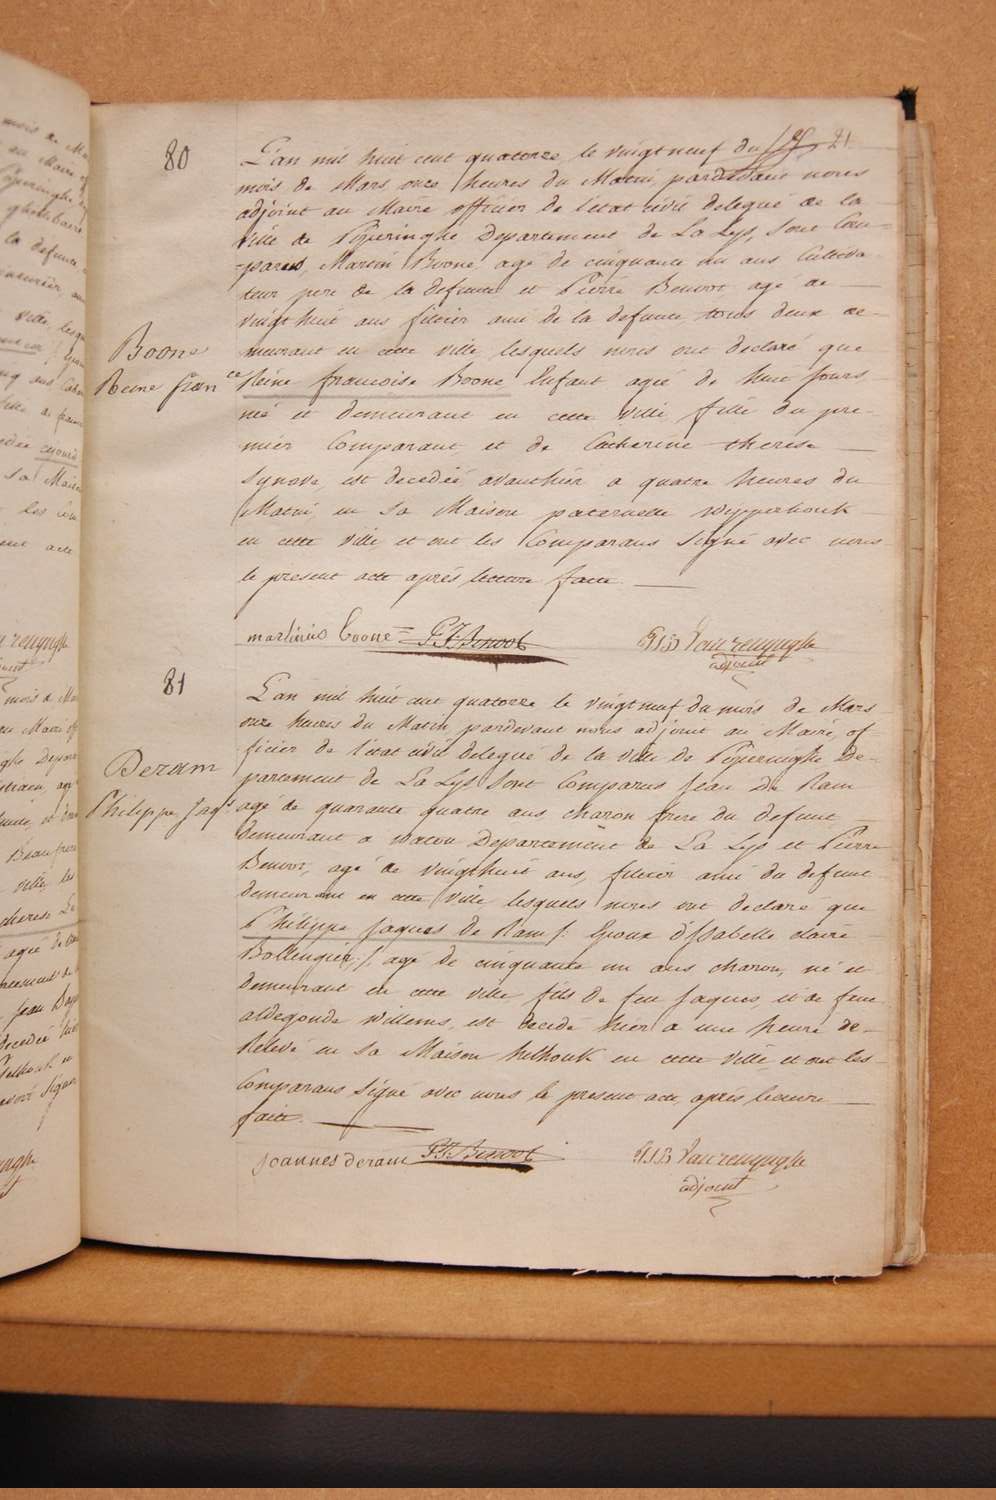 80
21
L'an mil huit cent quatorze le vingtneuf du
mois de Mars onze heures du Matin, pardevant nous
adjoint au Maire officier de l'etat civil delegué de la
ville de Poperinghe Departement de La Lys, sont Com-
-parus, Martin Boone agé de cinquante un ans Cultiva-
teur pere de la defunte et Pierre Benoot agé de
vingt huit ans filtier ami de la defunte tous deux de-
meurant en cette ville, lesquels nous ont declaré que
Boone
Reine fran ce
Reine francoise Boone Enfant agée de huit jours
née et demeurant en cette ville, fille du pre-
mier Comparant et de Catherine therese
Synove, est decedée avanthier a quatre heures du
Matin, en sa Maison paternelle Wipperhouk
en cette ville et ont les Comparans Signé avec nous
le present acte après lecture faite.
martinus boone P.F. Benoot PJB Vanrenynghe
adjoint
81
L'an mil huit cent quatorze le vingtneuf du mois de Mars
onze heures du Matin, pardevant nous adjoint au Maire, of-
ficier de l'etat civil delegué de la ville de Poperinghe De-
Deram
partement de La Lys sont Comparus Jean De Ram
Philippe Jaqs
agé de quarante quatre ans charon frere du defunt
demeurant a watou Departement de La Lys et Pierre
Benoot, agé de vingthuit ans, filtier ami du defunt
demeurant en cette ville, lesquels nous ont declaré que
Philippe Jaques de Ram /: Epoux d'Isabelle claire
Bollengier :/, agé de cinquante un ans charon, né et
demeurant en cette ville fils de feu Jaques, et de feue
aldegonde Willems, est decedé hier a une heure de-
Relevé en sa Maison helhouk en cette ville, et ont les
Comparans Signé avec nous le present acte, apres lecture
faite.
joannes deram P.F. Benoot PJB Vanrenynghe
adjoint